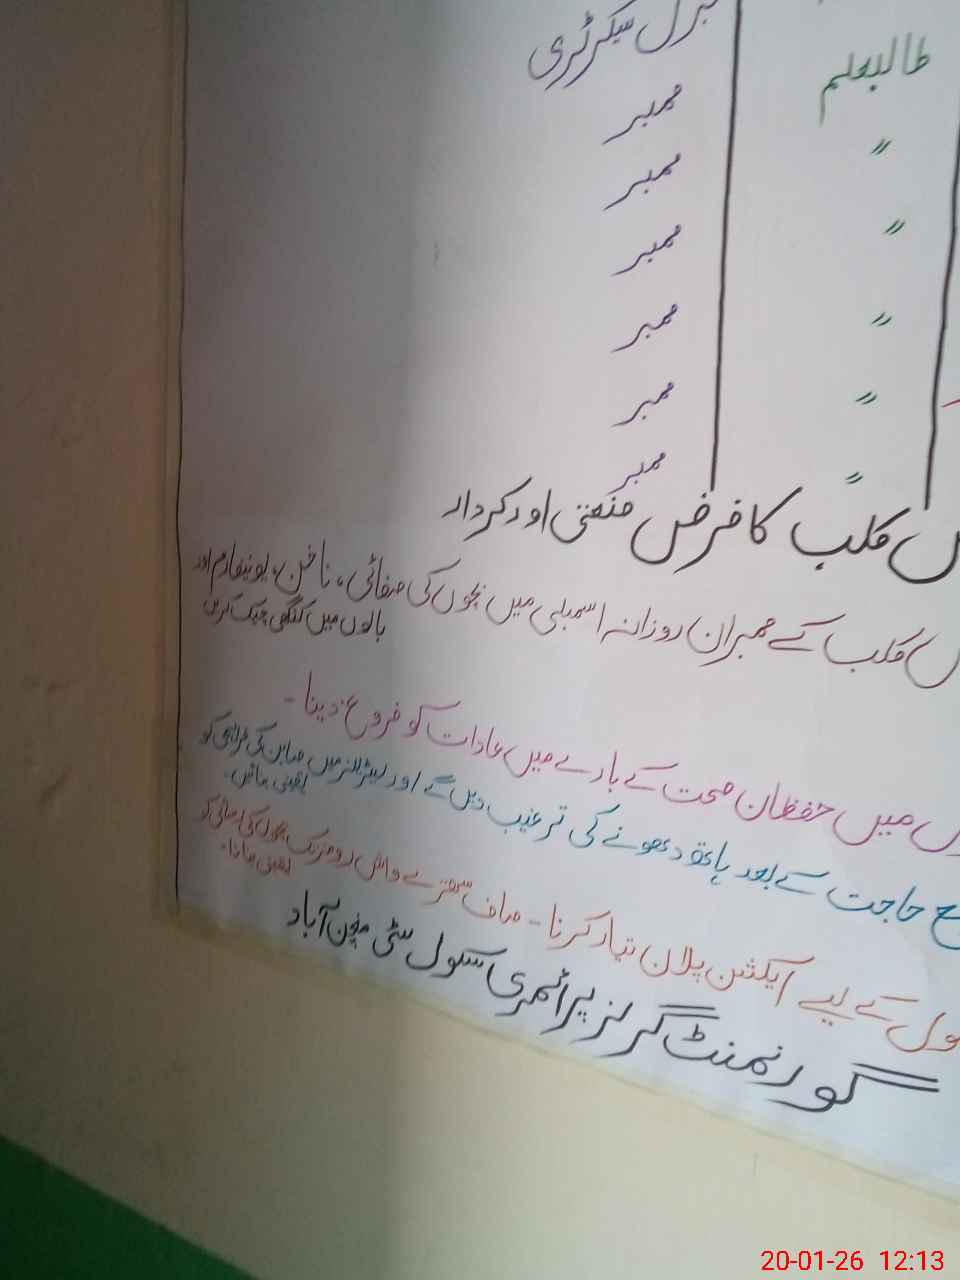 جنرل سیکرٹری
طالبعلم
ممبر
〃
ممبر
〃
ممبر
〃
ممبر
〃
ممبر
〃
ممبر
کلب کا فرض منصبی اور کردار
کلب کے ممبران روزانہ اسمبلی میں بچوں کی صفائی، ناخن، یونیفارم اور
بالوں میں کنگھی چیک کریں
میں حفظان صحت کے بارے میں عادات کو فروغ دینا۔
حاجت کے بعد ہاتھ دھونے کی ترغیب دیں گے اور لیٹرینز میں صابن کی فراہمی کو
یقینی بنائیں۔
کے لیے ایکشن پلان تیار کرنا۔ صاف ستھرے واش رومز تک بچوں کی رسائی کو
یقینی بنانا۔
گورنمنٹ گرلز پرائمری سکول سٹی منچن آباد
20-01-26 12:13